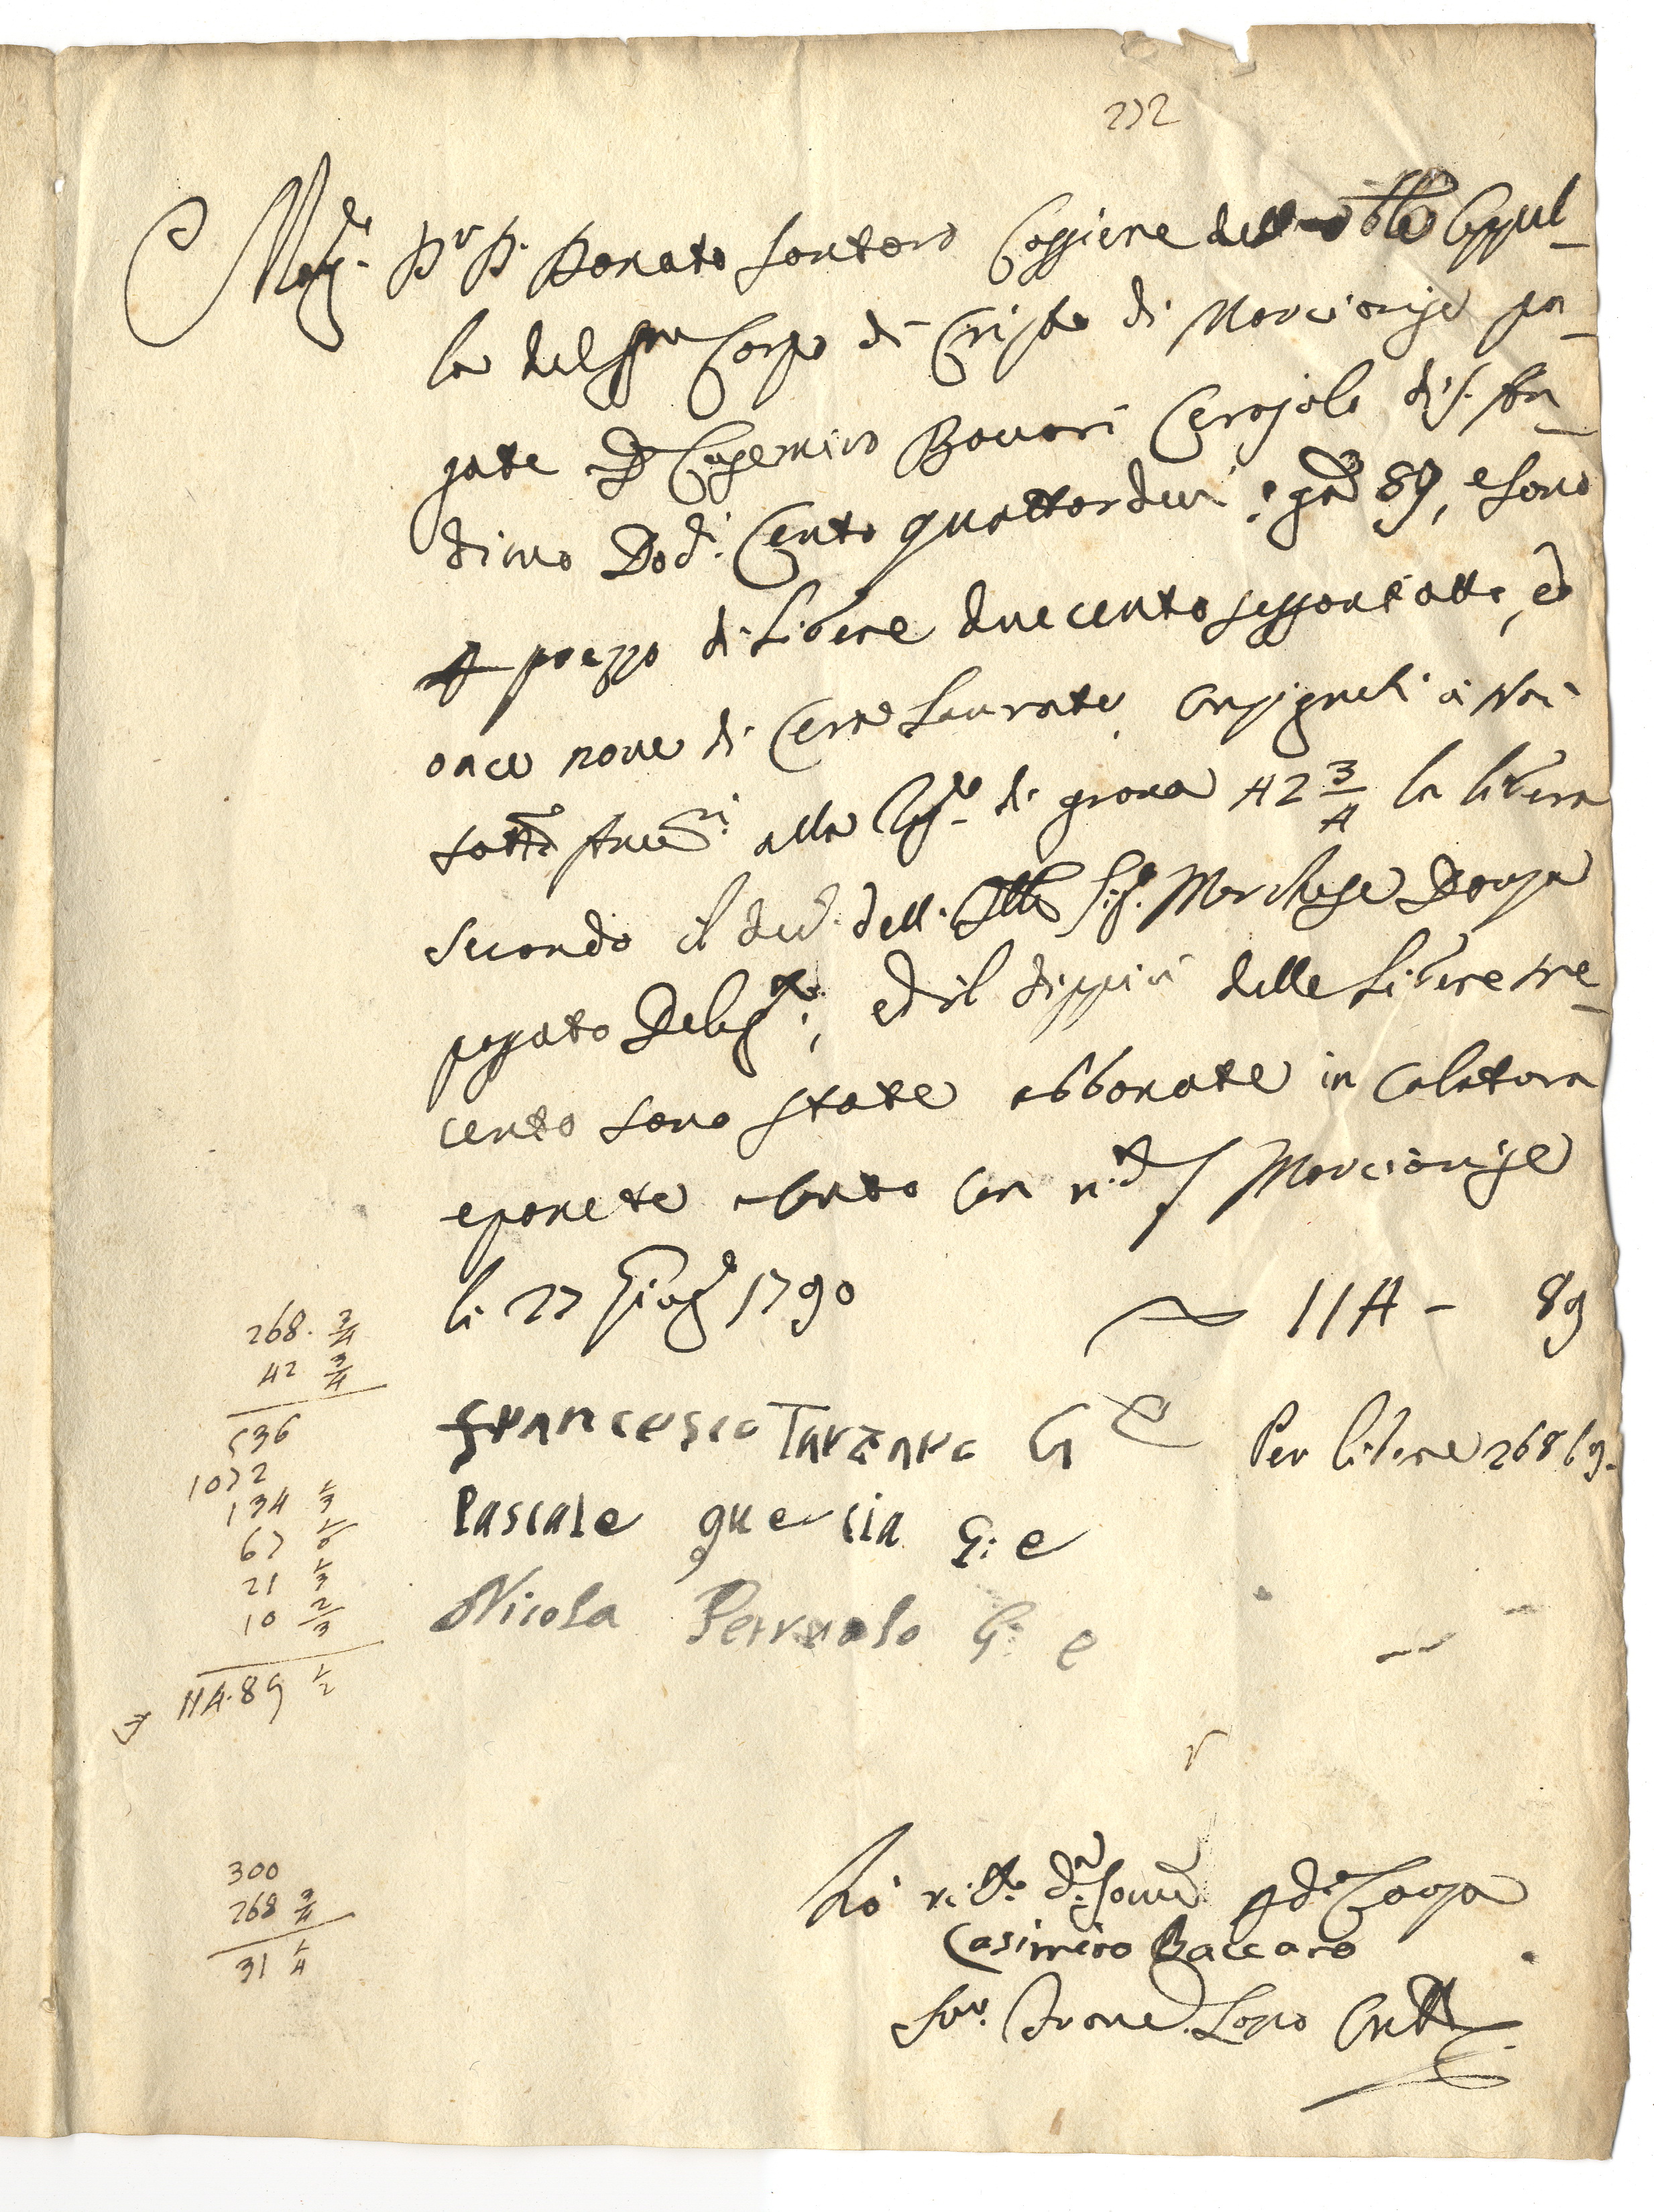 232
Mag.co Dr D. Donato Santoro Cassiere della Ven.le Cappel-
la del SSmo Corpo di Cristo di Marcianise pa-
gate à Casemiro Bovari Cerajolo di S. An
timo Doc.i Cento quattordici: e g.na 89, e sono
prezzo di libere duecento sessantotto, ed
once nove di Cera laurata, consignati à Noi
sott.i alla rag.e di grana 42 3/4 la libera
secondo il dec.o dell'Ill.e Sig.r Marchese
pagato Deleg.to; ed il dippiù delle libere tre-
cento sono state abbonate in calatura
e ponete a conto con n.ri Marcianise
li 27 Giug.o 1790 114 - 89
Francesco Tarzano G e Per libere 268 : 9.
Pascale guercia G: e
Nicola Perruolo G: e
268. 3/4
42 3/4
536
1072
134 1/3
67 1/6
21 1/3
10 2/3
114.89 1/2
300
268 3/4
31 1/4
Hò ric.to d.a
Casimiro Baccaro
Lopo